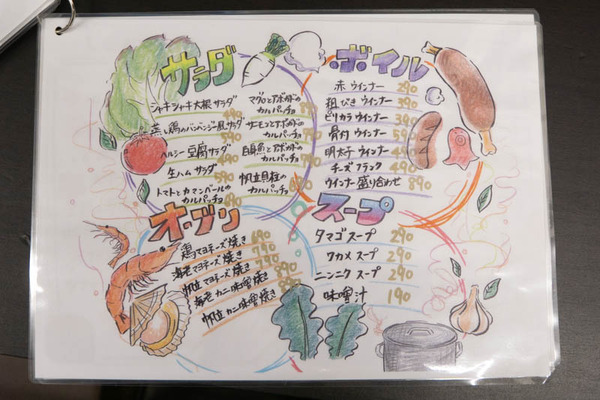 サラダ
シャキシャキ大根サラダ
490
蒸し鶏のバンバンジー風サラダ
590
ヘルシー豆腐サラダ
490
生ハムサラダ
590
トマトとカマンベールの
カルパッチョ
690
マグロとアボカドの
カルパッチョ
サーモンとアボカドの
カルパッチョ
白身魚とアボカドの
カルパッチョ
帆立貝柱の
カルパッチョ
ボイル
赤ウインナー 290
粗びきウインナー 390
ピリカラウインナー 390
骨付ウインナー 590
明太子ウインナー 490
チーズフランク 490
ウインナー盛り合わせ 890
オーブン
鶏マヨチーズ焼き 690
海老マヨチーズ焼き 790
帆立マヨチーズ焼き 790
海老カニ味噌焼き 890
帆立カニ味噌焼き 890
スープ
タマゴスープ 290
ワカメスープ 290
ニンニクスープ 290
味噌汁 190